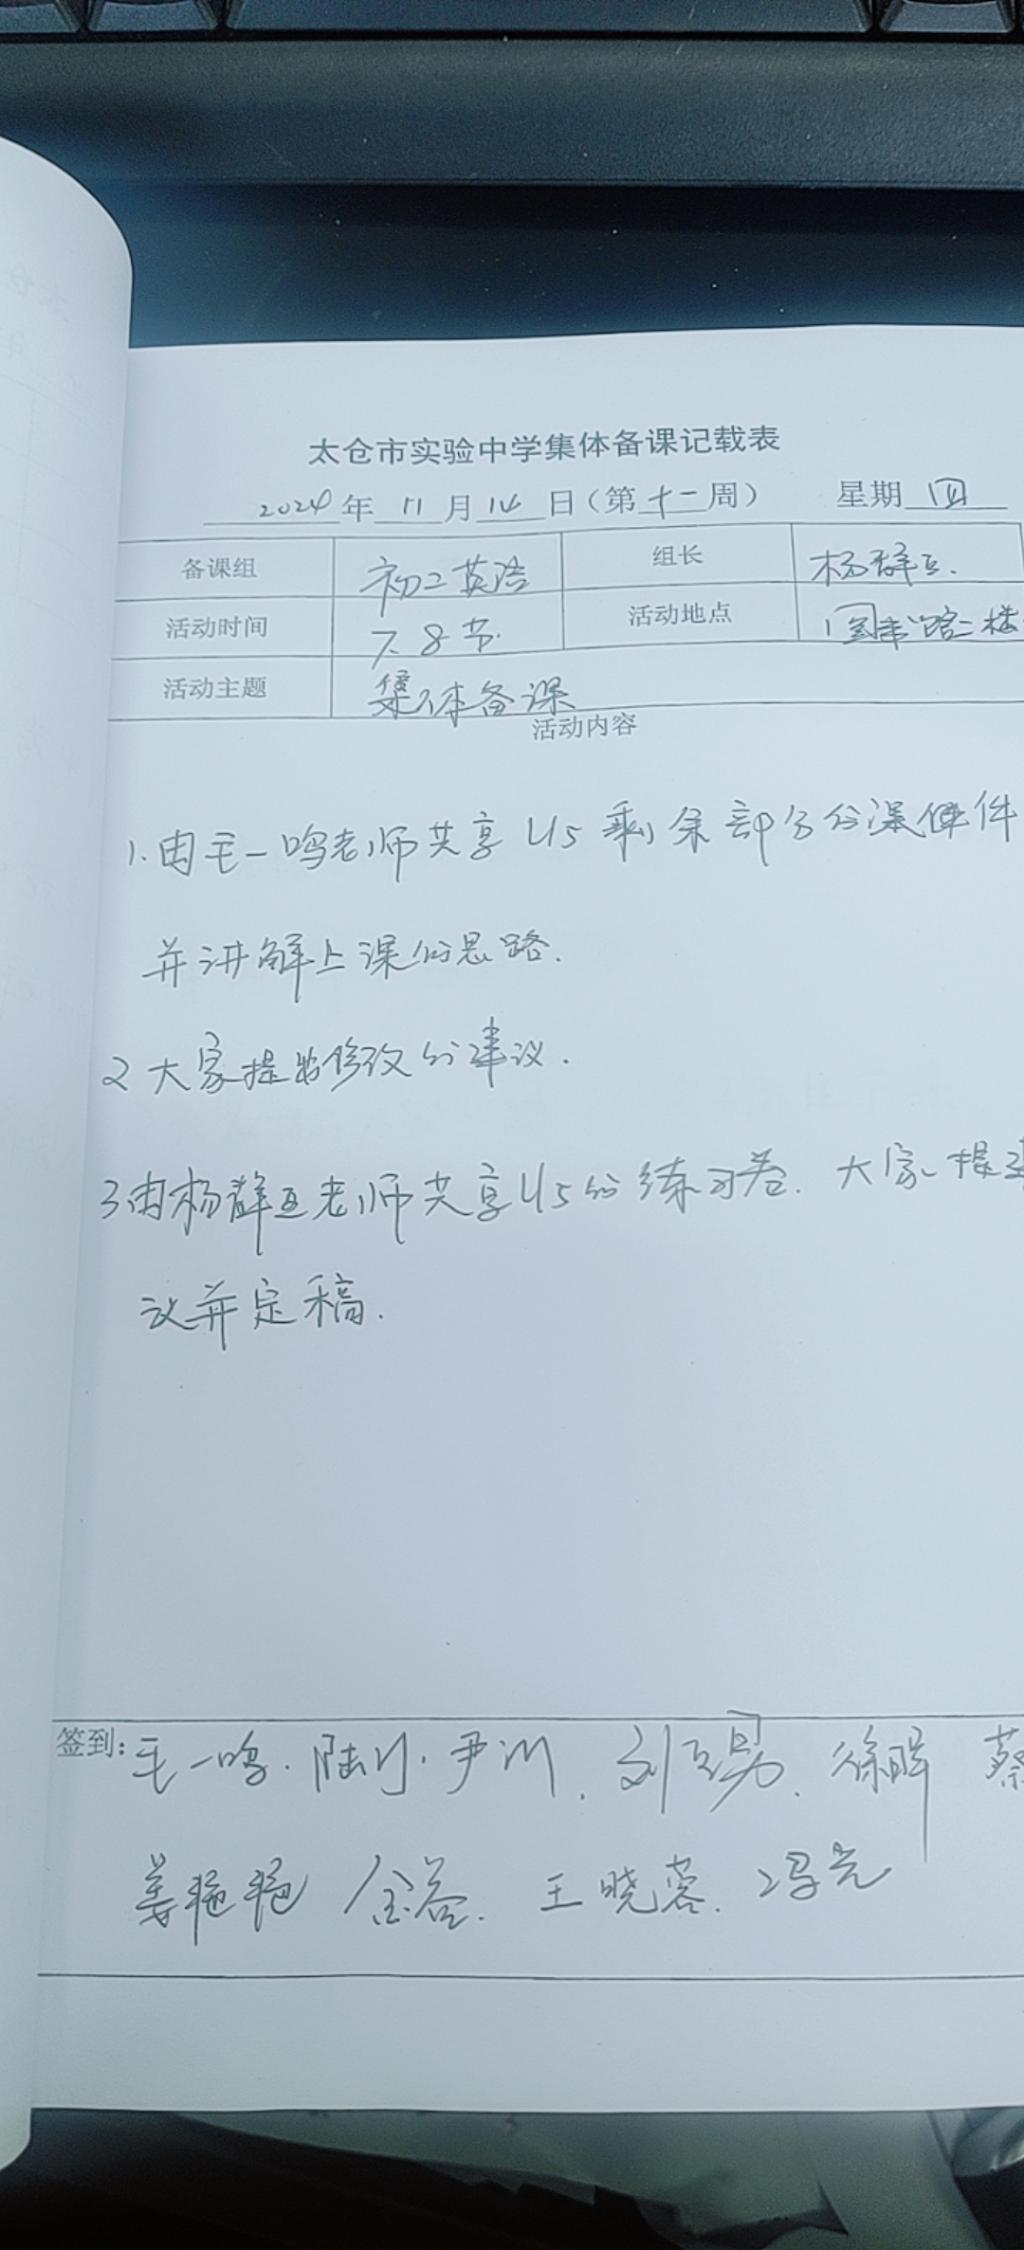 太仓市实验中学集体备课记载表
2024年 11月 14日（第十一周） 星期四
备课组 初二英语 组长 杨群
活动时间 7、8节 活动地点 图书馆二楼
活动主题 集体备课
活动内容
1. 由毛一鸣老师共享U5剩余部分的课件
并讲解上课的思路.
2 大家提出修改的建议.
3 由杨群老师共享U5的练习卷. 大家提
议并定稿.
签到: 毛一鸣. 陆 尹 刘 徐晖 蔡
姜艳艳 金 王晓蓉. 冯